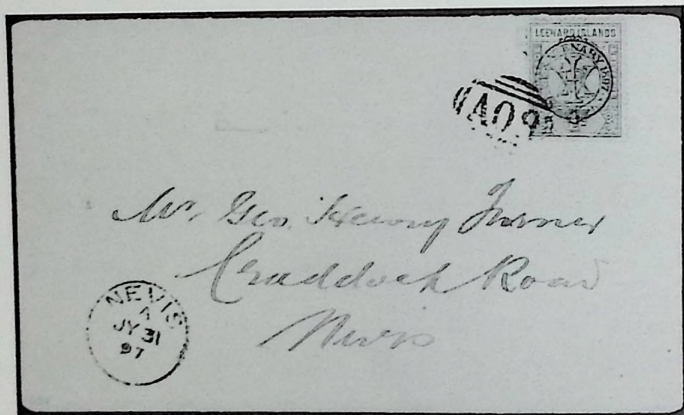 LEEWARD ISLANDS
A09
Mr. Geo. Henry Turner
Craddock Road
Nevis
NEVIS
A
JY 31
97